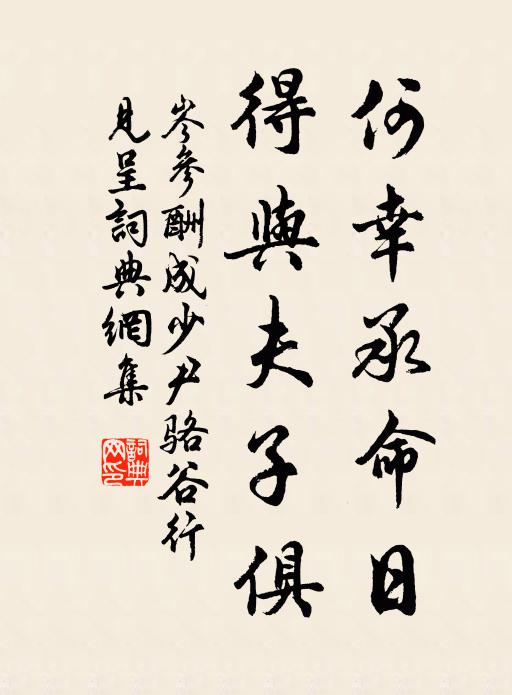 何幸承命日
得與夫子俱
岑參酬成少尹骆谷行
見呈詞典網集
詞典
网印